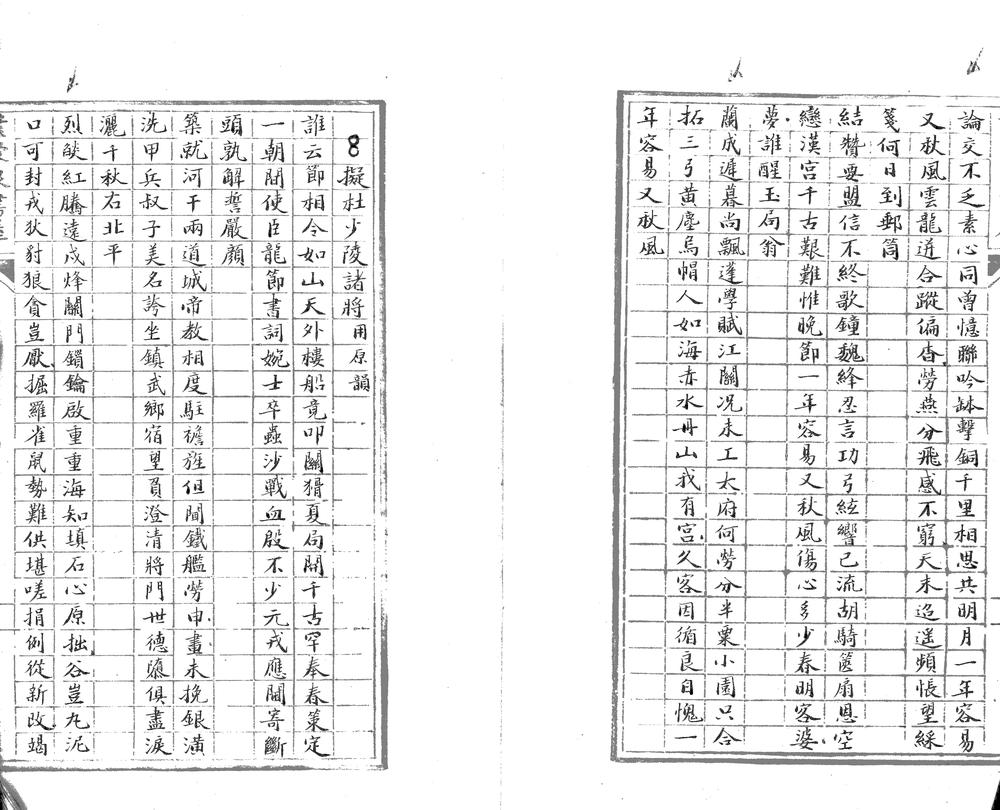 論交不乏素心同曾憶聯吟缽擊銅千里相思共明月一年容易
又秋風雲龍迸合蹤偏杳勞燕分飛感不窮天末迢遥頻悵望綵
箋何日到郵筒
結贊要盟信不終歌鐘魏絳忍言功弓絃響已流胡騎篋扇恩空
戀漢宮千古艱難惟晚節一年容易又秋風傷心多少春明客婆
夢誰醒玉局翁
蘭成遲暮尚飄蓬學賦江關况未工太府何勞分半粟小園只合
拓三弓黄塵烏帽人如海赤水丹山我有宮久客因循良自愧一
年容易又秋風
8擬杜少陵諸將用原韻
誰云節相令如山天外樓船竟叩關猾夏局開千古罕奉春策定
一朝間使臣龍節書詞婉士卒蟲沙戰血殷不少元戎應聞寄斷
頭孰解誓嚴顏
築就河干兩道城帝教相度駐襜旌但聞鐵艦勞申畫未挽銀潢
洗甲兵叔子美名誇坐鎮武鄉宿望負澄清將門世德隳俱盡淚
灑千秋右北平
烈燄紅騰遠戍烽關門鎖鑰啟重重海知填石心原拙谷豈丸泥
口可封戎狄豺狼貪豈厭掘羅雀鼠勢難供堪嗟捐例從新改竭